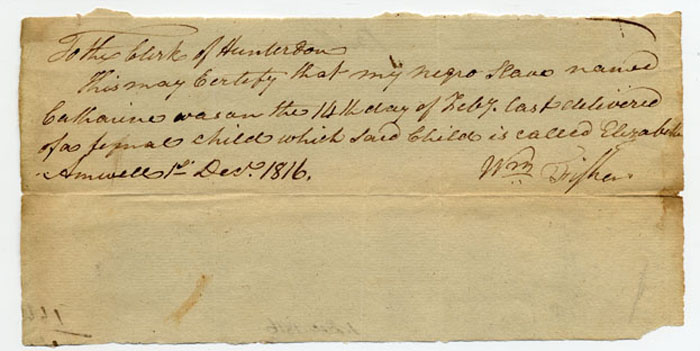 To the Clerk of Hunterdon
This may Certify that my negro Slave named
Catharine was on the 14th day of Feby. last delivered
of a femal child which said Child is called Elizabeth
Amwell 1st Decr. 1816.
Wm Fisher